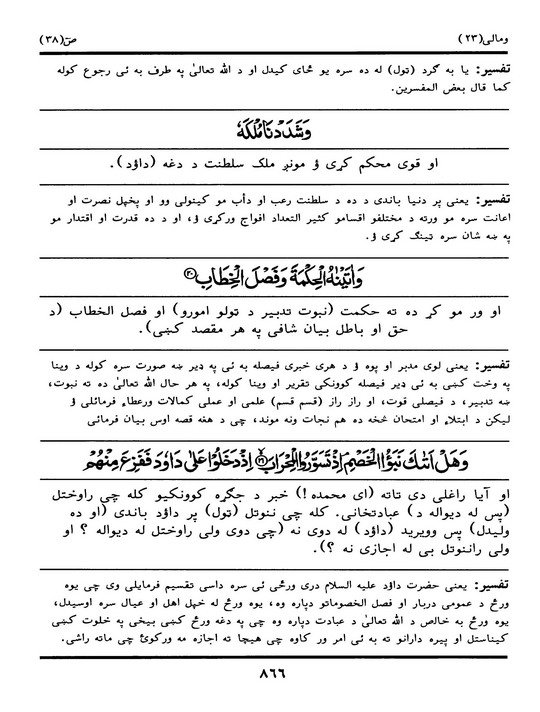 ومالى (٢٣)
صٓ (٣٨)
تفسير: يا به ګرد (ټول) له ده سره يو ځای کېدل او د الله تعالیٰ په طرف به ئې رجوع کوله
کما قال بعض المفسرين.
وَشَدَدْنَا مُلْكَهٗ
او قوی محکم کړی ؤ مونږ ملک سلطنت د دغه (داؤد).
تفسير: يعنی پر دنيا باندی د ده د سلطنت رعب او دأب مو کينولی وو او پخپل نصرت او
اعانت سره مو ورته د مختلفو اقسامو کثير التعداد افواج ورکړی ؤ، او د ده قدرت او اقتدار مو
په ښه شان سره ټينګ کړی ؤ.
وَاٰتَيْنٰهُ الْحِكْمَةَ وَفَصْلَ الْخِطَابِ ﴿٢٠﴾
او ور مو کړ ده ته حکمت (نبوت تدبير د ټولو امورو) او فصل الخطاب (د
حق او باطل بيان شافی په هر مقصد کښی).
تفسير: يعنی لوی مدبر او پوه ؤ د هری خبری فيصله به ئی په ډير ښه صورت سره کوله د وينا
په وخت کښی به ئی ډير فيصله کوونکی تقرير او وينا کوله، په هر حال الله تعالیٰ ده ته نبوت،
ښه تدبير، د فيصلی قوت، او راز راز (قسم قسم) علمی او عملی کمالات ورعطاء فرمائلی ؤ
ليکن د ابتلاء او امتحان څخه ده هم نجات ونه موند، چی د هغه قصه اوس بيان فرمائی
وَهَلْ اَتٰىكَ نَبَؤُا الْخَصْمِ اِذْ تَسَوَّرُوا الْمِحْرَابَ ﴿٢١﴾ اِذْ دَخَلُوْا عَلٰى دَاوٗدَ فَفَزِعَ مِنْهُمْ
او آيا راغلی دی تاته (ای محمده !) خبر د جګړه کوونکيو کله چی راوختل
(پس له ديواله د) عبادتخانی. کله چی ننوتل (ټول) پر داؤد باندی (او ده
وليدل) پس وويريد (داؤد) له دوی نه (چی دوی ولی راوختل له ديواله ؟ او
ولی راننوتل بی له اجازی نه ؟).
تفسير: يعنی حضرت داؤد عليه السلام دری ورځی ئی سره داسی تقسيم فرمايلی وی چی يوه
ورځ د عمومی دربار او فصل الخصوماتو دپاره وه، يوه ورځ له خپل اهل او عيال سره اوسيدل،
يوه ورځ به خالص د الله تعالیٰ د عبادت دپاره وه چی په دغه ورځ کښی بيخی په خلوت کښی
کيناستل او پيره دارانو ته به ئی امر ور کاوه چی هيچا ته اجازه مه ورکوئ چی ماته راشی.
٨٦٦